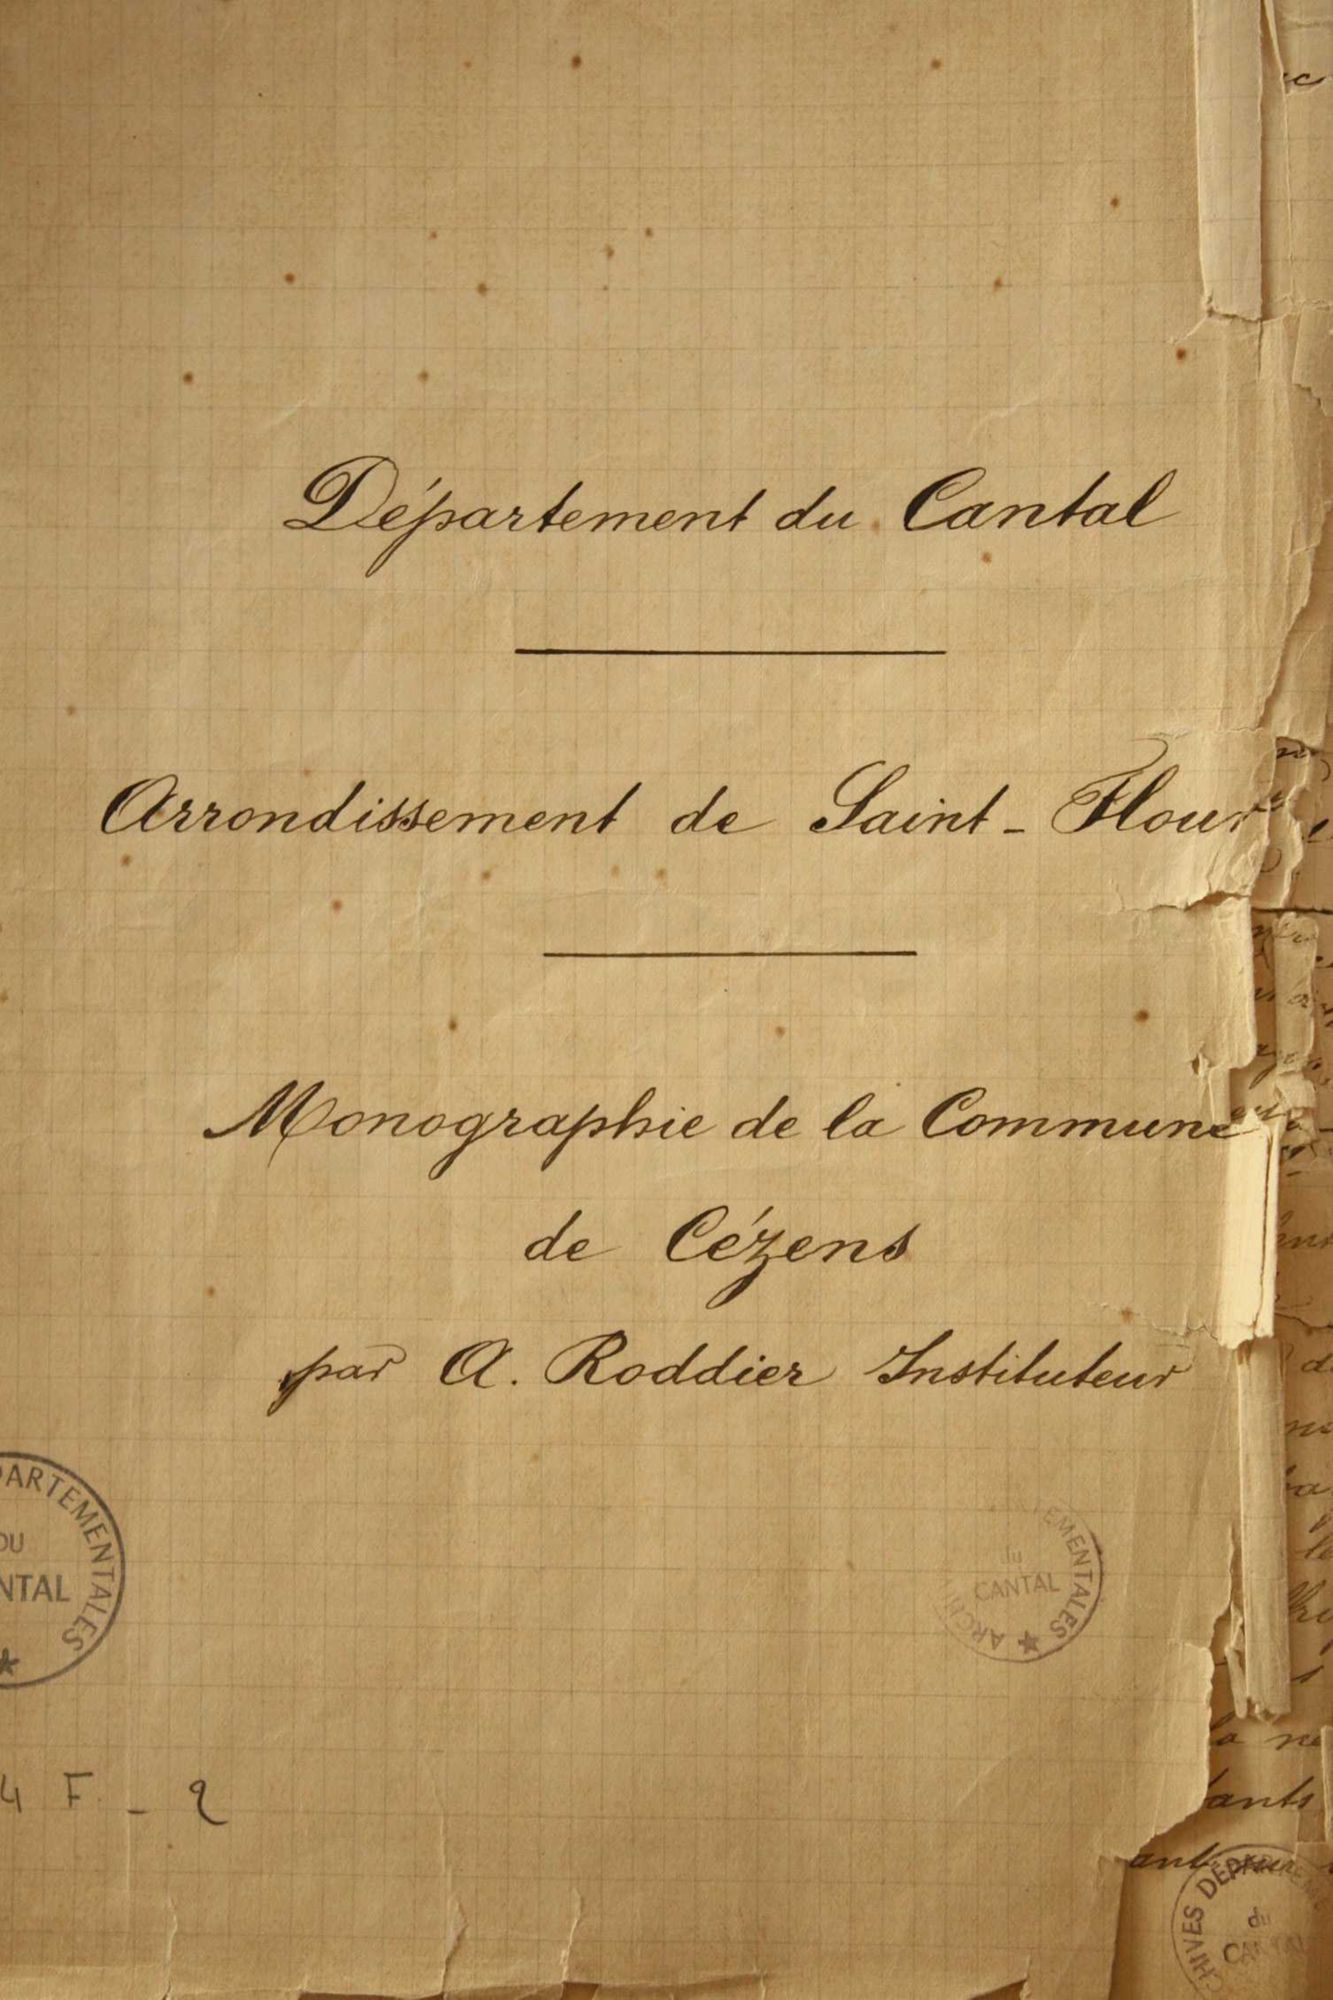 Département du Cantal
Arrondissement de Saint-Flour
Monographie de la Commune
de Cézens
par A. Roddier Instituteur
PARTEMENTALES
DU
NTAL
EMENTALES
du
CANTAL
ARCHI
4 F - 2
ants
CHIVES DÉPAR
du